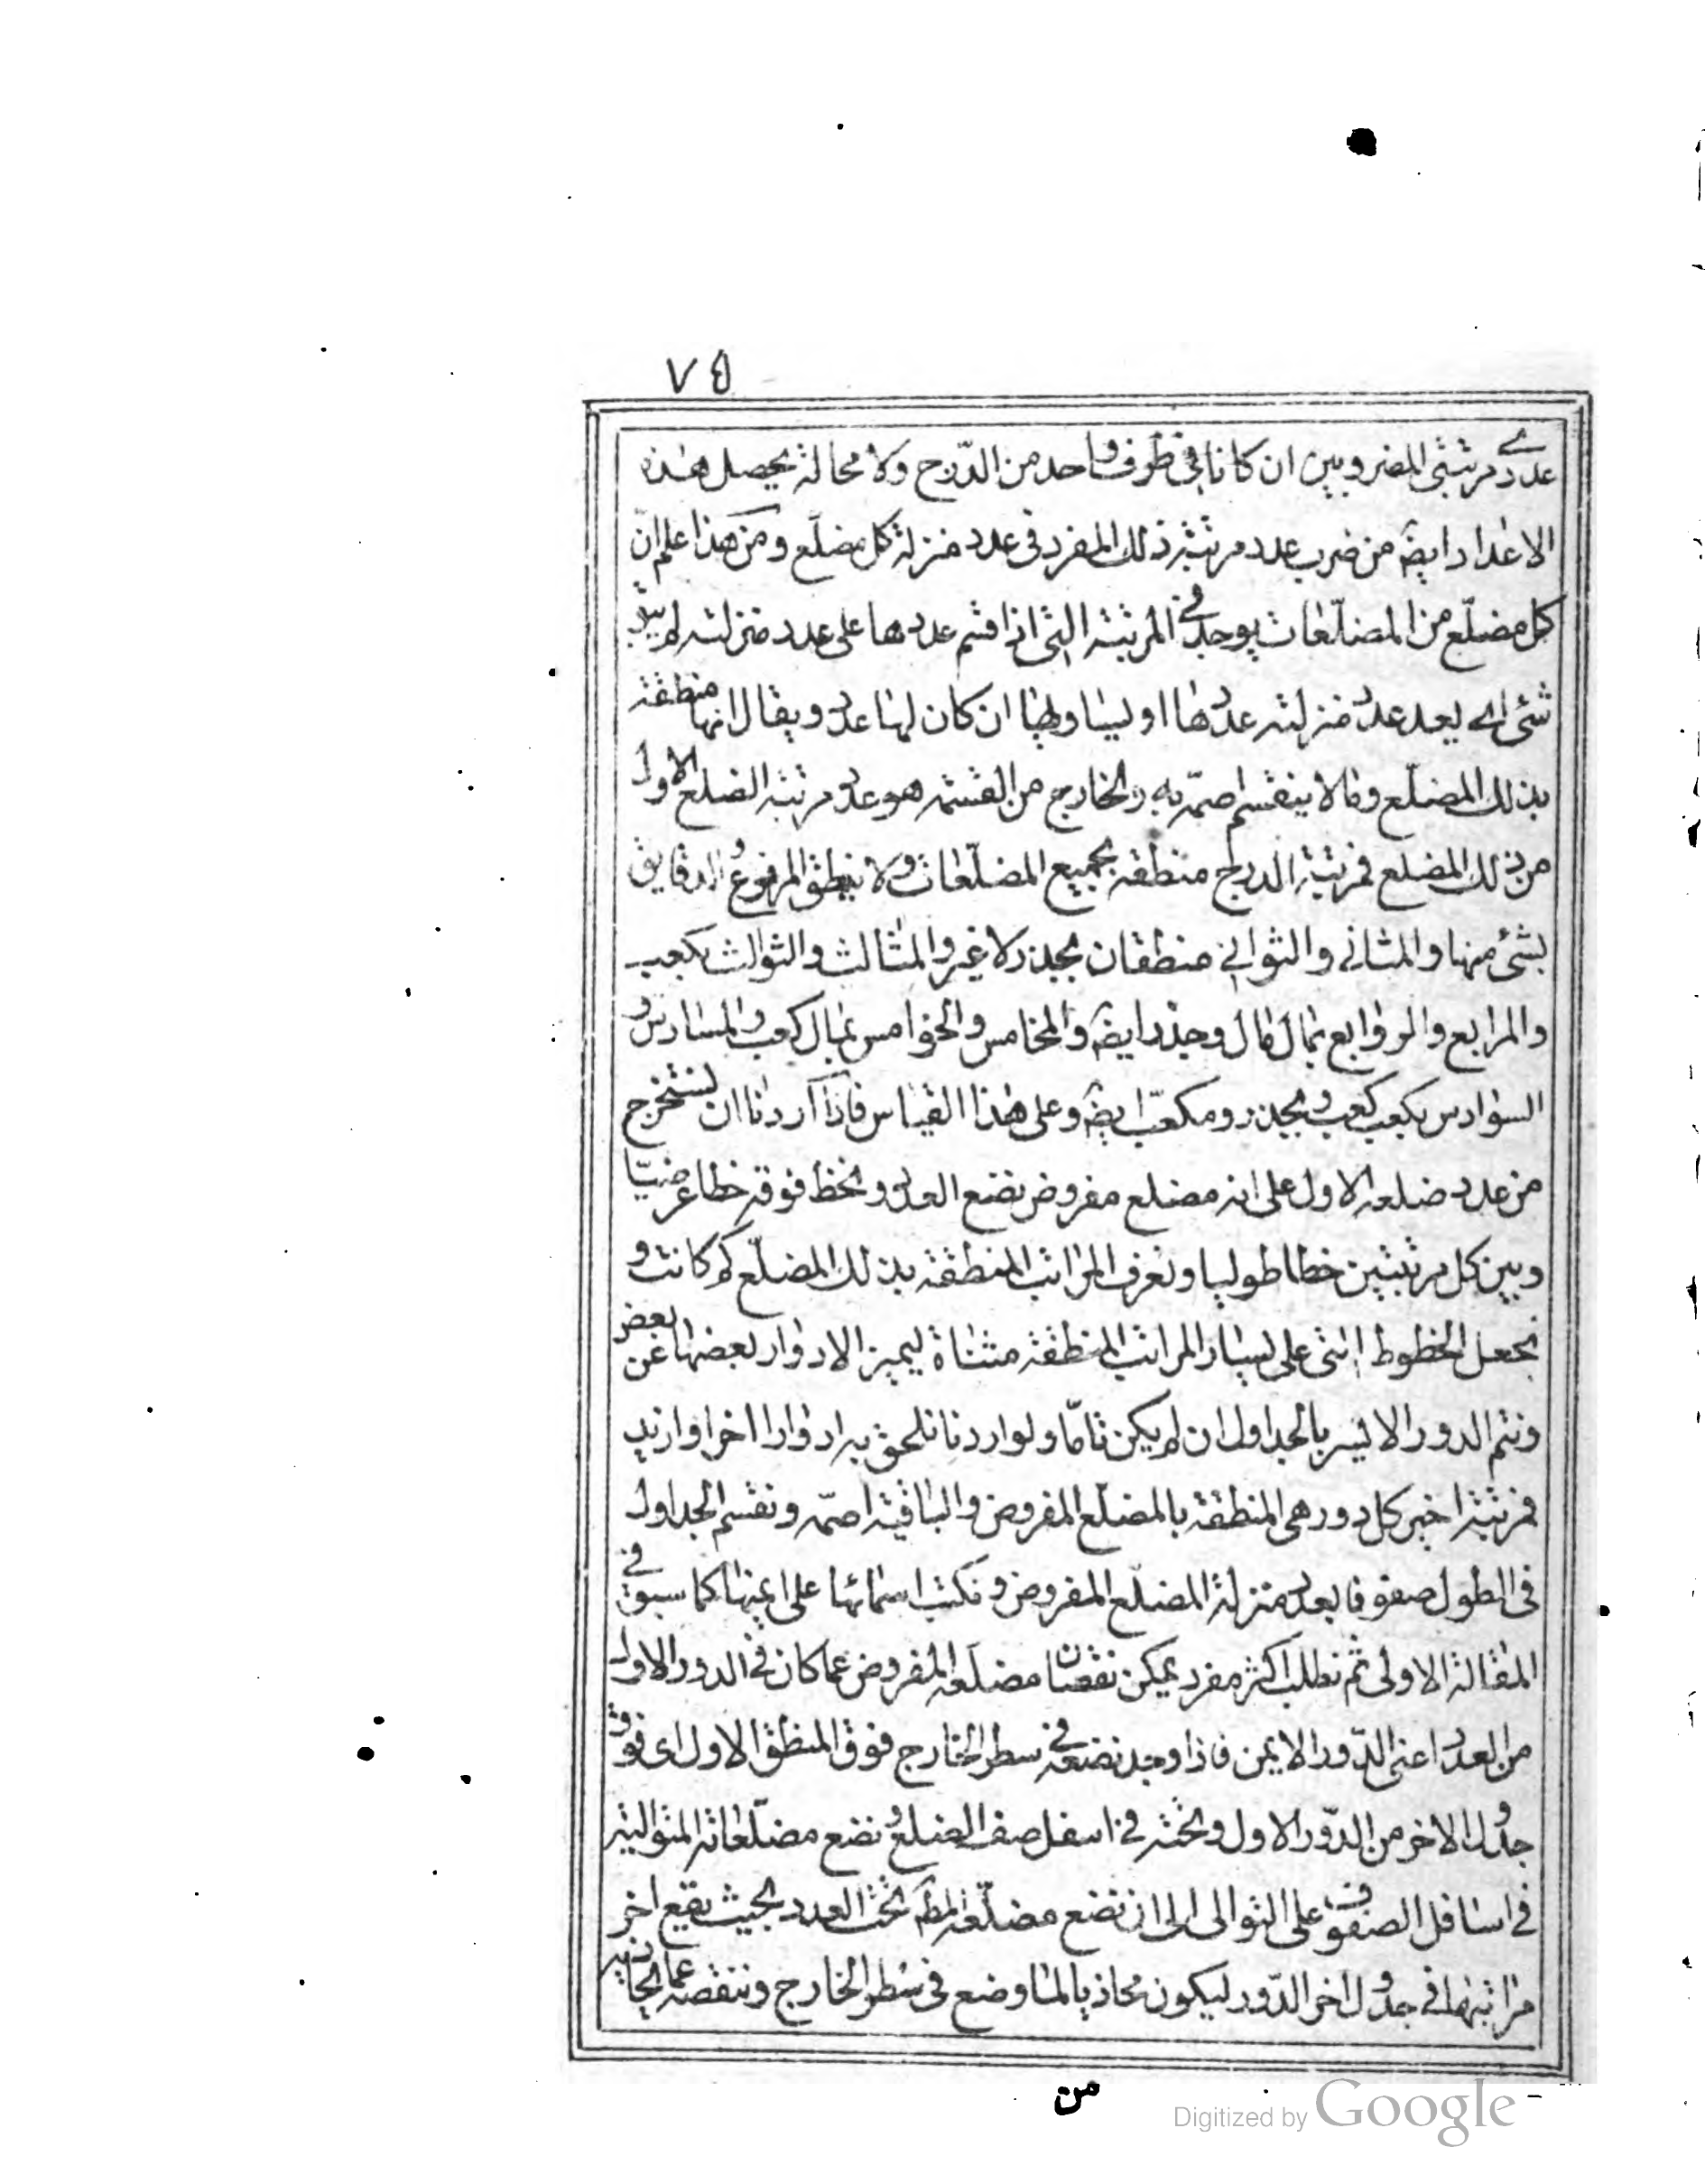 ٧٥
عددي مرتبتي المضروبين ان كانا في طرف واحد من الدّرج ولا محالة يحصل هذه
الاعداد ايضۤ من ضرب عدد مرتبة ذلك المفرد في عدد منزلة كل مضلّع ومن هذا علم انّ
كل مضلّع من المضلّعات يوجد في المرتبة التي اذا قسم عددها على عدد منزلته لم يبق
شئ اى يعد عدد منزلته عددها او يساويها ان كان لها عدد ويقال انها منطقة
بذلك المضلّع وما لا ينقسم اصمّ به والخارج من القسمة هو عدد مرتبة الضلع الاول
من ذلك المضلع فمرتبة الدرج منطقة بجميع المضلّعات ولا ينطق المرفوع والدقايق
بشئ منها والمثاني والثواني منطقان بجذر لا غير والمثالث والثوالث بكعب
والمرابع والروابع بمال مال وجذر ايضۤ والمخامس والخوامس بمال كعب والمسادس و
السوادس بكعب كعب وبجذر ومكعّب ايضۤ وعلى هذا القياس فاذا اردنا ان نستخرج
من عدد ضلعه الاول على انه مضلع مفروض نضع العدد ونخط فوقه خطا عرضيّا
وبين كل مرتبتين خطا طوليا ونعرف المراتب المنطقة بذلك المضلّع كم كانت و
نجعل الخطوط التي على يسار المراتب المنطقة مثناة ليميز الادوار بعضها عن بعض
ونتم الدور الايسر بالجداول ان لم يكن تامّا ولو اردنا نلحق به ادوارا اخرا وازيد
فمرتبة اخير كل دور هي المنطقة بالمضلّع المفروض والباقية اصمّه ونقسم الجداول
في الطول صفوفا بعدد منزلة المضلّع المفروض ونكتب اسمائها على ايمنها كما سبق في
المقالة الاولى ثم نطلب اكثر مفرد يمكن نقصان مضلّعه المفروض عما كان في الدور الاول
من العدد اعني الدّور الايمن فاذا وجد نضعه في سطر الخارج فوق المنطق الاول اى فوق
جدول الاخر من الدّور الاول وتحته في اسفل صف الضلع ونضع مضلّعاته المتوالية
في اسافل الصفوف على التوالي الى ان نضع مضلّعه المطۤ تحت العدد بحيث يقع اخر
مراتبها في جدول اخر الدّور ليكون محاذيا لما وضع في سطر الخارج وننقصه عما يحاذيه
من
Digitized by Google